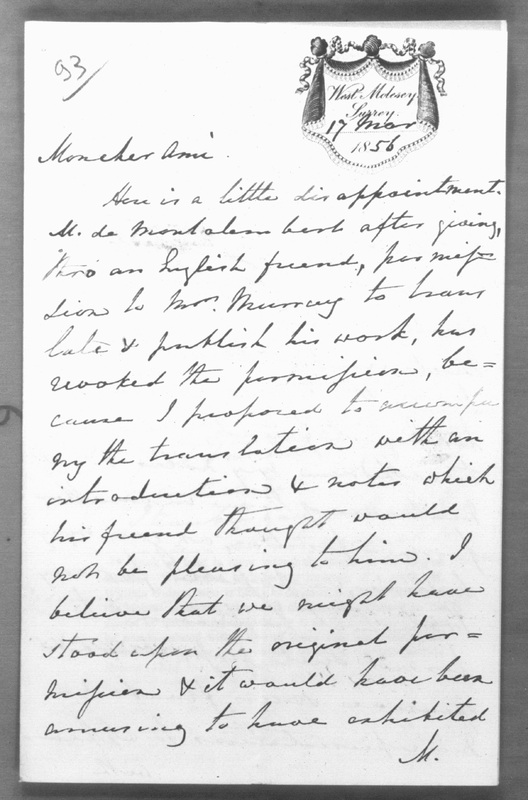 93/
West Molesey
Surrey.
17 Mar
1856
Mon cher Ami.
Here is a little disappointment.
M. de Montalembert after giving,
thro' an English friend, permis-
sion to Mr. Murray to trans
late & publish his work, has
revoked the permission, be=
cause I proposed to accompa
ny the translation with an
introduction & notes which
his friend thought would
not be pleasing to him. I
believe that we might have
stood upon the original per=
mission & it would have been
amusing to have exhibited
M.